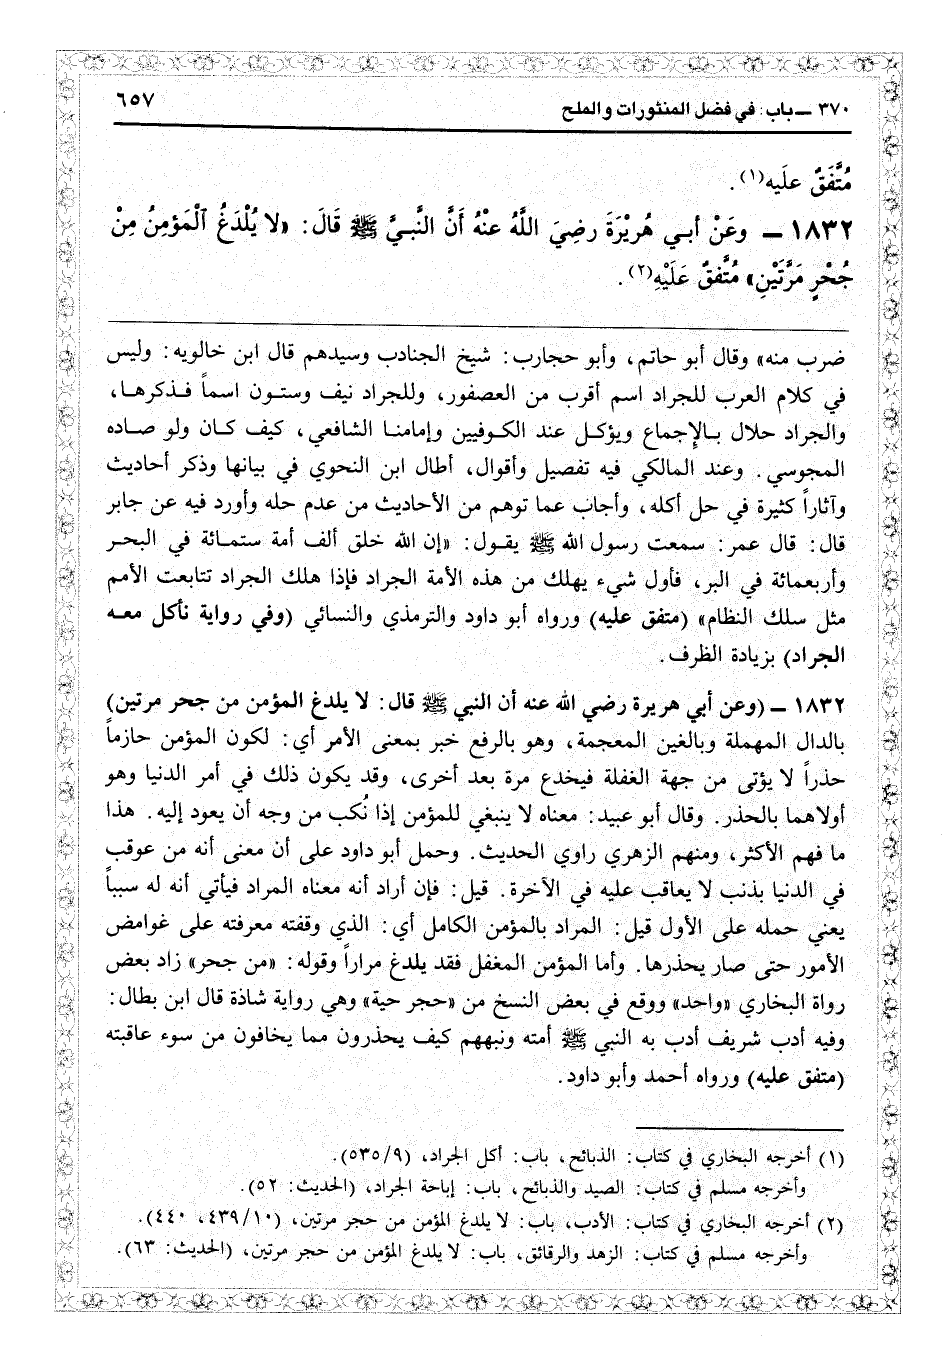 ٣٧٠ ــ باب: في فضل المنثورات والملح
٦٥٧
مُتَّفَقٌ علَيه(١).
١٨٣٢ ــ وعَنْ أبي هُرَيْرَةَ رضِيَ اللَّهُ عنْهُ أَنَّ النَّبيَّ ﷺ قَالَ: «لا يُلْدَغُ ٱلْمَؤمِنُ مِنْ
جُحْرٍ مَرَّتَيْنِ» مُتَّفقٌ عَلَيْهِ(٢).
ضرب منه» وقال أبو حاتم، وأبو حجارب: شيخ الجنادب وسيدهم قال ابن خالويه: وليس
في كلام العرب للجراد اسم أقرب من العصفور، وللجراد نيف وستون اسماً فذكرها،
والجراد حلال بالإجماع ويؤكل عند الكوفيين وإمامنا الشافعي، كيف كان ولو صاده
المجوسي. وعند المالكي فيه تفصيل وأقوال، أطال ابن النحوي في بيانها وذكر أحاديث
وآثاراً كثيرة في حل أكله، وأجاب عما توهم من الأحاديث من عدم حله وأورد فيه عن جابر
قال: قال عمر: سمعت رسول الله ﷺ يقول: «إن الله خلق ألف أمة ستمائة في البحر
وأربعمائة في البر، فأول شيء يهلك من هذه الأمة الجراد فإذا هلك الجراد تتابعت الأمم
مثل سلك النظام» (متفق عليه) ورواه أبو داود والترمذي والنسائي (وفي رواية نأكل معه
الجراد) بزيادة الظرف.
١٨٣٢ ــ (وعن أبي هريرة رضي الله عنه أن النبي ﷺ قال: لا يلدغ المؤمن من جحر مرتين)
بالدال المهملة وبالغين المعجمة، وهو بالرفع خبر بمعنى الأمر أي: لكون المؤمن حازماً
حذراً لا يؤتى من جهة الغفلة فيخدع مرة بعد أخرى، وقد يكون ذلك في أمر الدنيا وهو
أولاهما بالحذر. وقال أبو عبيد: معناه لا ينبغي للمؤمن إذا نُكب من وجه أن يعود إليه. هذا
ما فهم الأكثر، ومنهم الزهري راوي الحديث. وحمل أبو داود على أن معنى أنه من عوقب
في الدنيا بذنب لا يعاقب عليه في الآخرة. قيل: فإن أراد أنه معناه المراد فيأتي أنه له سبباً
يعني حمله على الأول قيل: المراد بالمؤمن الكامل أي: الذي وقفته معرفته على غوامض
الأمور حتى صار يحذرها. وأما المؤمن المغفل فقد يلدغ مراراً وقوله: «من جحر» زاد بعض
رواة البخاري «واحد» ووقع في بعض النسخ من «حجر حية» وهي رواية شاذة قال ابن بطال:
وفيه أدب شريف أدب به النبي ﷺ أمته ونبههم كيف يحذرون مما يخافون من سوء عاقبته
(متفق عليه) ورواه أحمد وأبو داود.
(١) أخرجه البخاري في كتاب: الذبائح، باب: أكل الجراد، (٥٣٥/٩).
وأخرجه مسلم في كتاب: الصيد والذبائح، باب: إباحة الجراد، (الحديث: ٥٢).
(٢) أخرجه البخاري في كتاب: الأدب، باب: لا يلدغ المؤمن من حجر مرتين، (٤٣٩/١٠، ٤٤٠).
وأخرجه مسلم في كتاب: الزهد والرقائق، باب: لا يلدغ المؤمن من حجر مرتين، (الحديث: ٦٣).